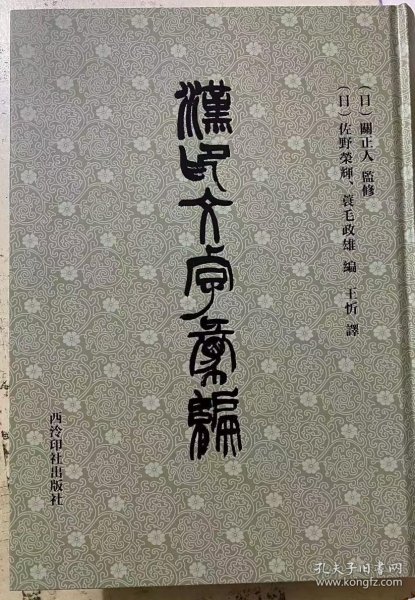 (日)關正人 監修
(日)佐野榮輝、蓑毛政雄 編 王忻 譯
漢印文字彙編
西泠印社出版社
孔夫子旧书网
www.kongfz.com